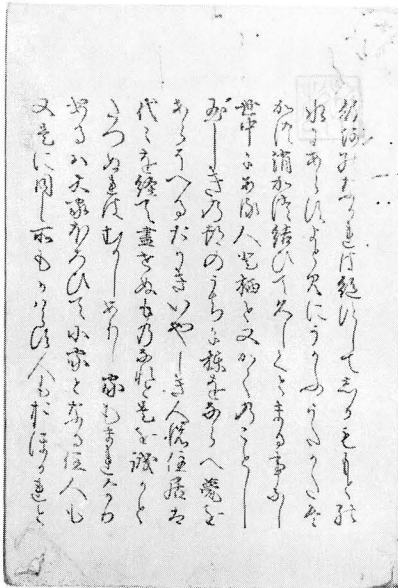 行河のなかれは絶すして志かももとの
水にあらすよとみにうかふうたかたは
かつ消かつ結ひて久しくとまる事なし
世中にある人と栖と又かくのことし
玉しきの都のうちに棟をならへ甍を
あらそへるたかきいやしき人の住居は
代々を経て盡せぬものなれと是を誠かと
たつぬれはむかしありし家はまれなり
或ハ大家ほろひて小家となる住人も
又是に同し所もかはらす人もおほかれと